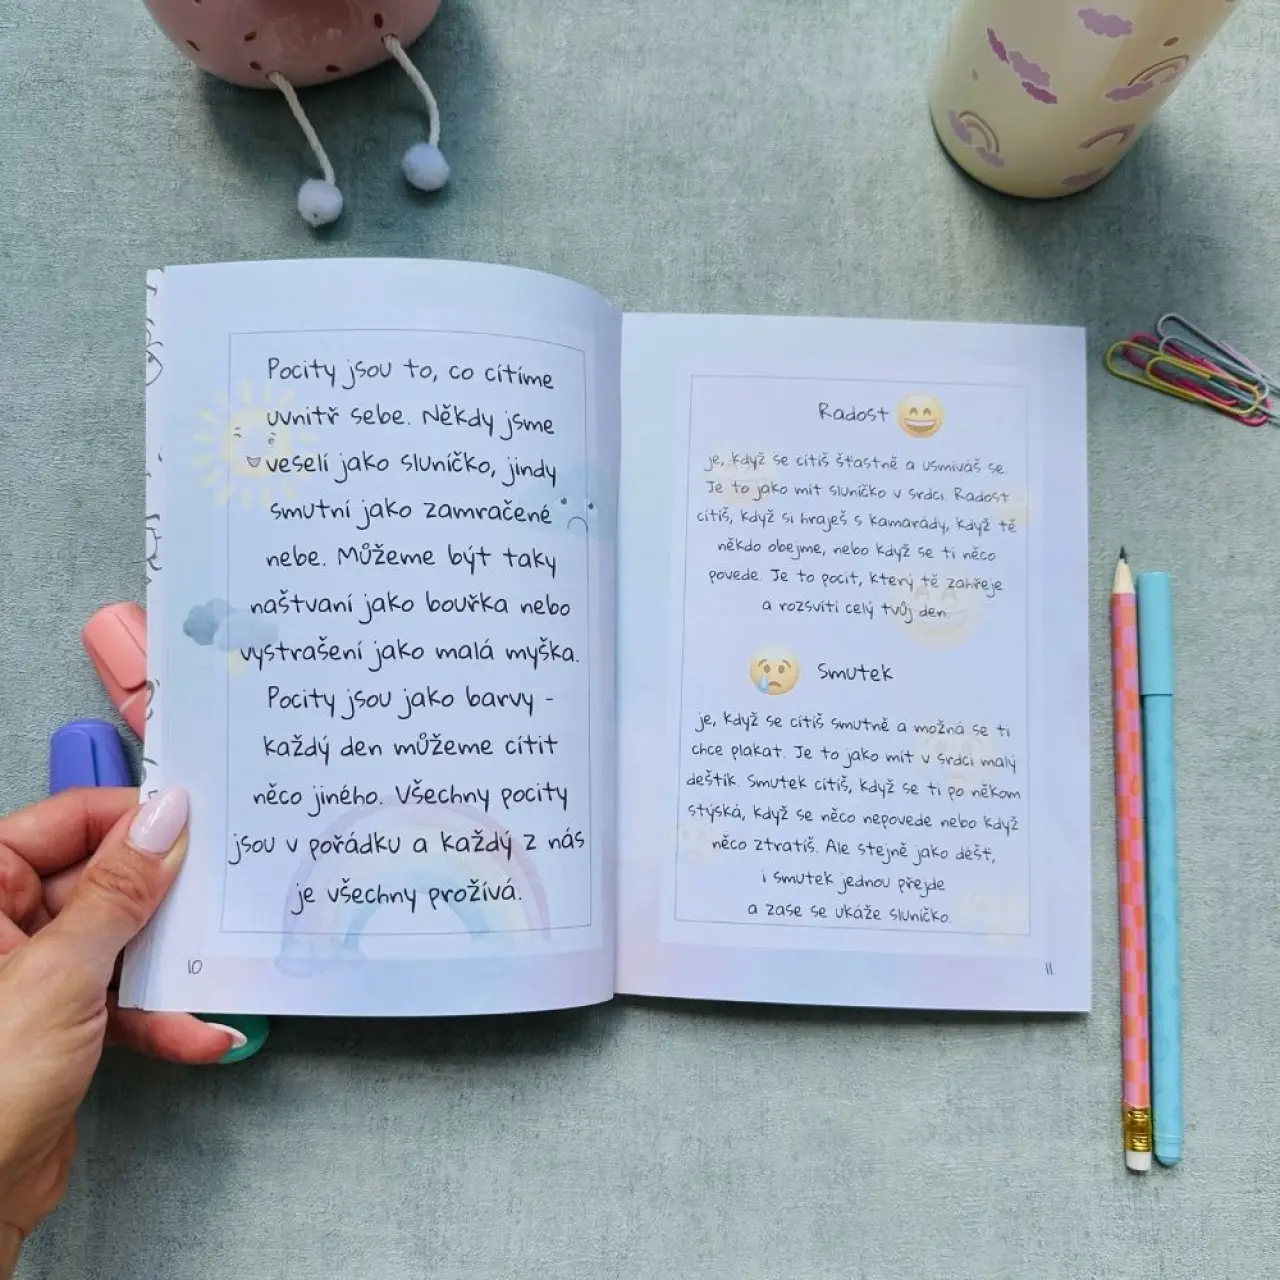 Pocity jsou to, co cítíme
uvnitř sebe. Někdy jsme
veselí jako sluníčko, jindy
smutní jako zamračené
nebe. Můžeme být taky
naštvaní jako bouřka nebo
vystrašení jako malá myška.
Pocity jsou jako barvy -
každý den můžeme cítit
něco jiného. Všechny pocity
jsou v pořádku a každý z nás
je všechny prožívá.
10
Radost
je, když se cítíš šťastně a usmíváš se.
Je to jako mít sluníčko v srdci. Radost
cítíš, když si hraješ s kamarády, když tě
někdo obejme, nebo když se ti něco
povede. Je to pocit, který tě zahřeje
a rozsvítí celý tvůj den.
Smutek
je, když se cítíš smutně a možná se ti
chce plakat. Je to jako mít v srdci malý
deštík. Smutek cítíš, když se ti po někom
stýská, když se něco nepovede nebo když
něco ztratíš. Ale stejně jako déšť,
i smutek jednou přejde
a zase se ukáže sluníčko.
11